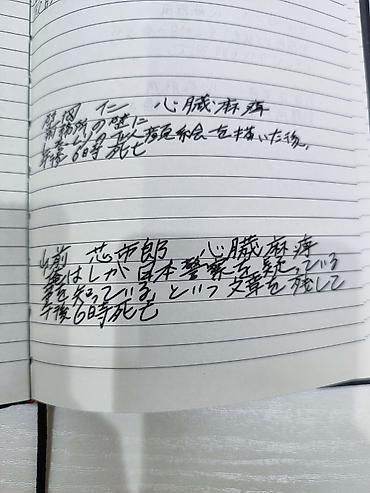 岡 仁 心臓麻痺
刑務所の壁に
絵を描いた後、
午後6時死亡
山前 芯市郎 心臓麻痺
はしが日本警察を疑っている
事を知っている という文章を残して
午後6時死亡